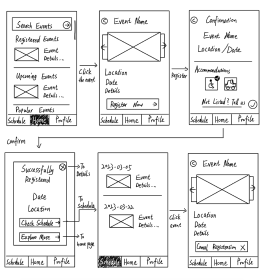 Search Events
Registered Events
Event
Details...
Upcoming Events
Event
Details...
Popular Events
Schedule Home Profile
Click
the event
Event Name
Location
Date
Details
Register Now →
Schedule Home Profile
Register
Confirmation
Event Name
Location / Date
Accommodations
Not Listed? Tell us
Schedule Home Profile
confirm
Successfully
Registered
Date
Location
Check Schedule →
Explore More →
Schedule Home Profile
To
Details
To
Schedule
To
home page
2023-03-05
Event
Details...
2023-03-22
Event
Details...
Schedule Home Profile
Click
event
Event Name
Location
Date
Details
Cancel Registration X
Schedule Home Profile